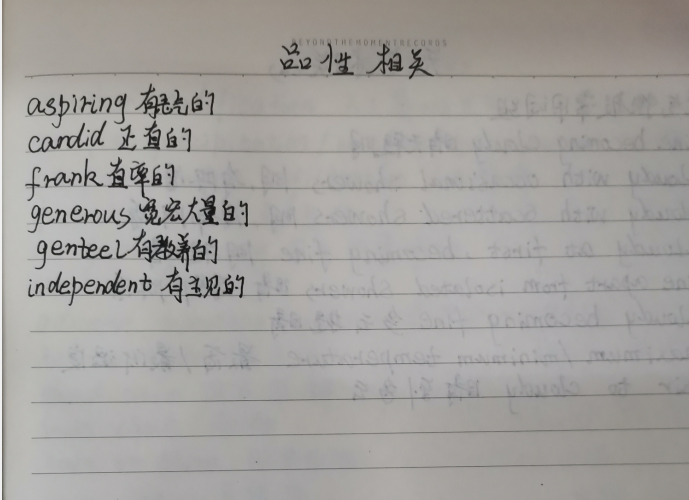 BEYONDTHEMOMENTRECORDS
品性 相关
aspiring 有志气的
candid 正直的
frank 直率的
generous 宽宏大量的
genteel 有教养的
independent 有主见的